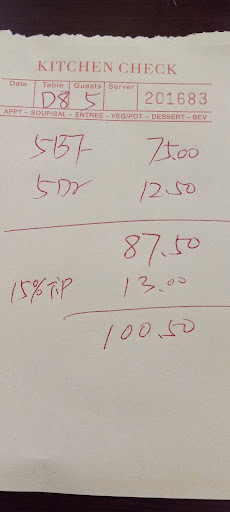 KITCHEN CHECK
Date Table Guests Server
D8 5 201683
APPT - SOUP/SAL - ENTREE - VEG/POT - DESSERT - BEV
5BF 75.00
5Dr 12.50
87.50
15% TIP 13.00
100.50